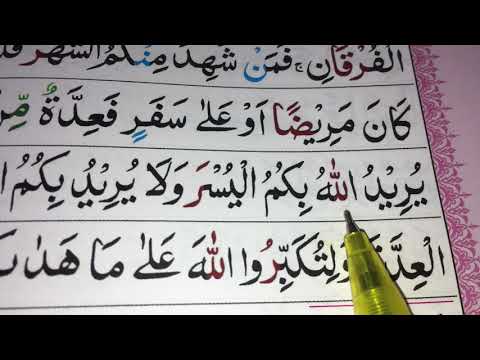 الْفُرْقَانِ ۚ فَمَنْ شَهِدَ مِنْكُمُ الشَّهْرَ
كَانَ مَرِيْضًا اَوْ عَلٰى سَفَرٍ فَعِدَّةٌ مِّنْ
يُرِيْدُ اللّٰهُ بِكُمُ الْيُسْرَ وَلَا يُرِيْدُ بِكُمُ
الْعِدَّةَ وَلِتُكَبِّرُوا اللّٰهَ عَلٰى مَا هَدٰى